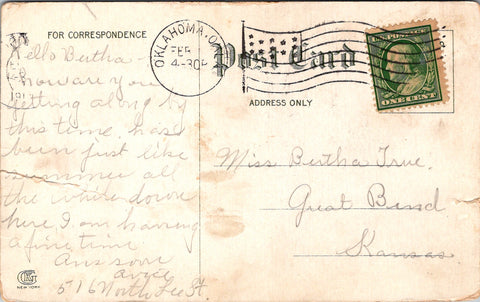 FOR CORRESPONDENCE
Hello Bertha -
how are you
getting along by
this time. has
been just like
summer all
the winter down
here I am having
a fine time
Ans soon
avice
516 North Lee St.
NEW YORK
OKLAHOMA, O
FEB
4-30P
Post Card
ADDRESS ONLY
ONE CENT
Miss Bertha True,
Great Bend
Kansas